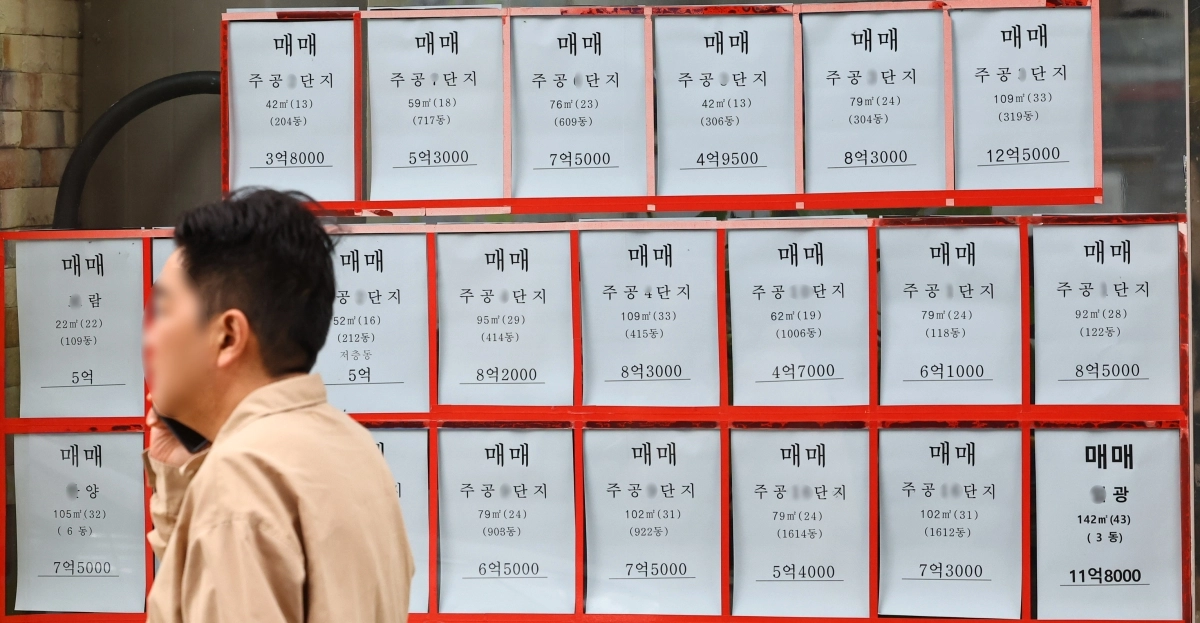 매매
주공 단지
42㎡(13)
(204동)
3억8000
매매
주공 단지
59㎡(18)
(717동)
5억3000
매매
주공 단지
76㎡(23)
(609동)
7억5000
매매
주공 단지
42㎡(13)
(306동)
4억9500
매매
주공 단지
79㎡(24)
(304동)
8억3000
매매
주공 단지
109㎡(33)
(319동)
12억5000
매매
람
22㎡(22)
(109동)
5억
매매
공 단지
52㎡(16)
(212동)
저층동
5억
매매
주공 단지
95㎡(29)
(414동)
8억2000
매매
주공4단지
109㎡(33)
(415동)
8억3000
매매
주공 단지
62㎡(19)
(1006동)
4억7000
매매
주공 단지
79㎡(24)
(118동)
6억1000
매매
주공 단지
92㎡(28)
(122동)
8억5000
매매
양
105㎡(32)
( 6 동)
7억5000
매매
주공 단지
79㎡(24)
(903동)
6억5000
매매
주공 단지
102㎡(31)
(922동)
7억5000
매매
주공 단지
79㎡(24)
(1614동)
5억4000
매매
주공 단지
102㎡(31)
(1612동)
7억3000
매매
광
142㎡(43)
( 3 동)
11억8000